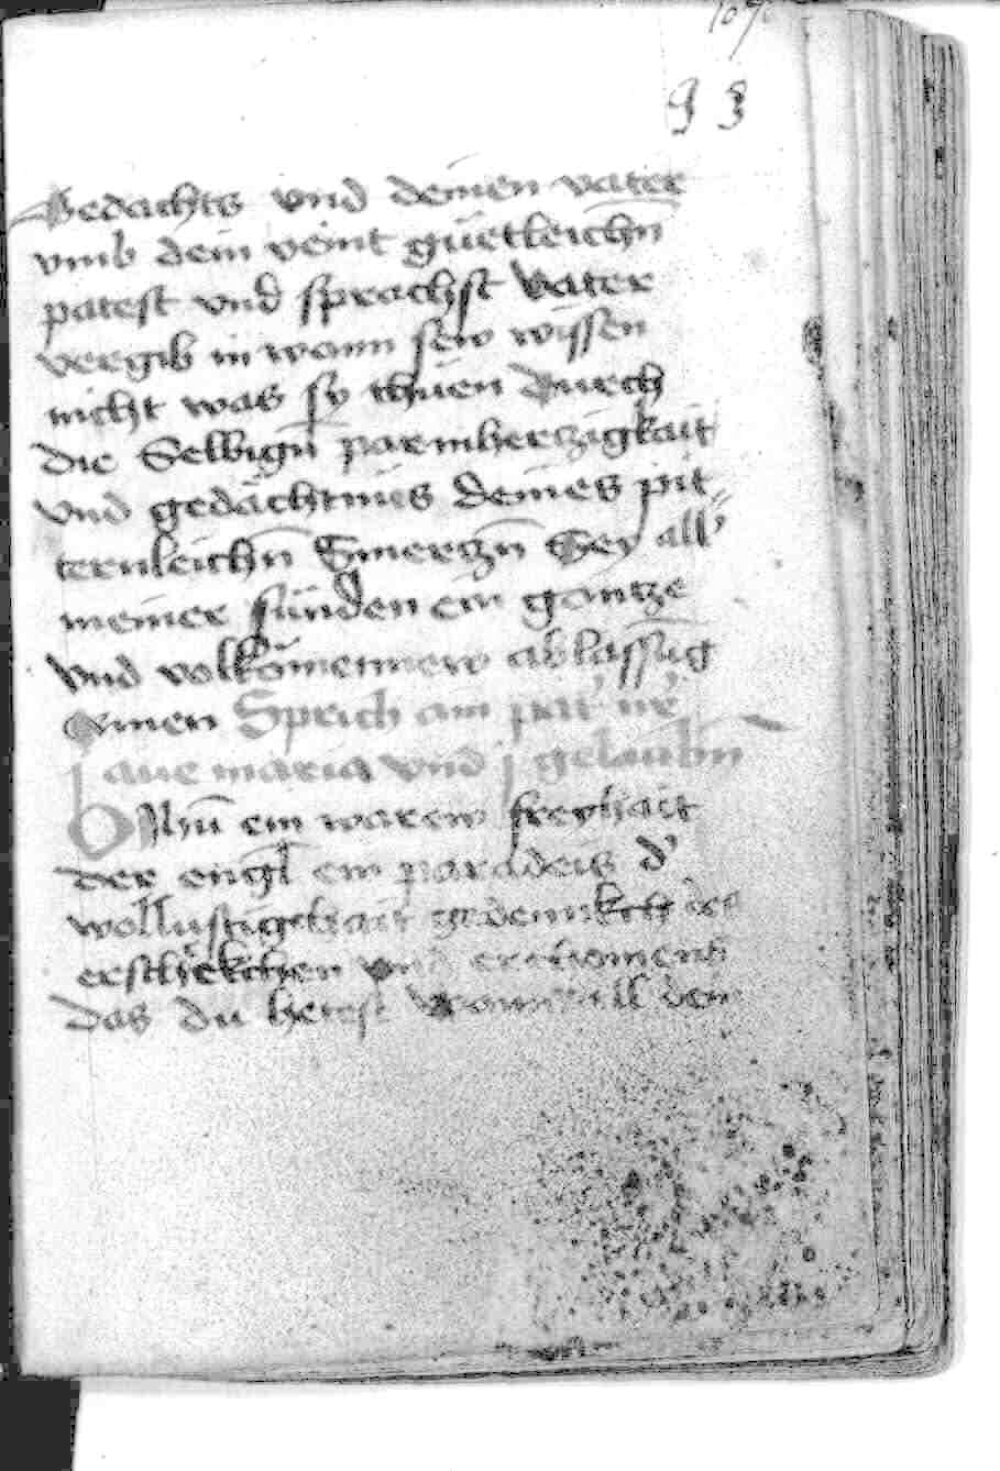 93
Gedachts vnd deinen vater
vmb dein veint güetleichn̄
patest vnd sprachst Vater
vergib in wann sew wissen
nicht was sy thüen Durch
die Selbign̄ parmherczigkait
vnd gedächtnüs deines pit„
ternleichn̄ Smerczn̄ Sey all'
meiner sünden ein gantze
vnd volkōmennew ablassūg
Amen Sprich ain pat' n̄r
j aue maria vnd j gelaubn̄
O Jhū ein warew freyhait
der engl ein paradeis d'
wollustigchait gedennkch des
erschrekchen vnd
das du hetest wann all dein